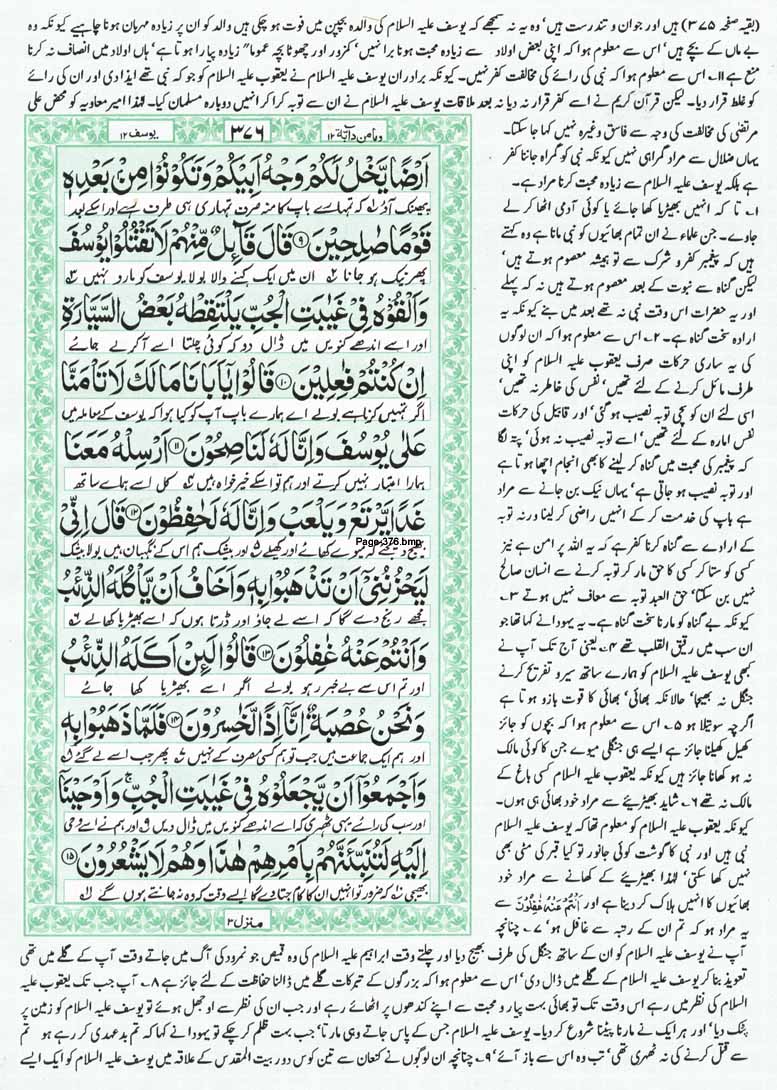 (بقیہ صفحہ ۳۷۵) ہیں اور جوان و تندرست ہیں' وہ یہ نہ سمجھے کہ یوسف علیہ السلام کی والدہ بچپن میں فوت ہو چکی ہیں والد کو ان پر زیادہ مہربان ہونا چاہیے کیونکہ وہ
بے ماں کے بچے ہیں' اس سے معلوم ہوا کہ اپنی بعض اولاد سے زیادہ محبت ہونا برا نہیں' کمزور اور چھوٹا بچہ عموما" زیادہ پیارا ہوتا ہے' ہاں اولاد میں انصاف نہ کرنا
منع ہے ۱۱۔ اس سے معلوم ہوا کہ نبی کی رائے کی مخالفت کفر نہیں۔ کیونکہ برادران یوسف علیہ السلام نے یعقوب علیہ السلام کو جو کہ نبی تھے ایذا دی اور ان کی رائے
کو غلط قرار دیا۔ لیکن قرآن کریم نے اسے کفر قرار نہ دیا نہ بعد ملاقات یوسف علیہ السلام نے ان سے توبہ کرا کر انہیں دوبارہ مسلمان کیا۔ لہٰذا امیر معاویہ کو محض علی
مرتضیٰ کی مخالفت کی وجہ سے فاسق وغیرہ نہیں کہا جا سکتا۔
یہاں ضلال سے مراد گمراہی نہیں کیونکہ نبی کو گمراہ جاننا کفر
ہے بلکہ یوسف علیہ السلام سے زیادہ محبت کرنا مراد ہے۔
۱۔ تا کہ انہیں بھیڑیا کھا جائے یا کوئی آدمی اٹھا کر لے
جاوے۔ جن علماء نے ان تمام بھائیوں کو نبی مانا ہے وہ کہتے
ہیں کہ پیغمبر کفر و شرک سے تو ہمیشہ معصوم ہوتے ہیں'
لیکن گناہ سے نبوت کے بعد معصوم ہوتے ہیں نہ کہ پہلے
اور یہ حضرات اس وقت نبی نہ تھے بعد میں بنے کیونکہ یہ
ارادہ سخت گناہ ہے۔ ۲۔ اس سے معلوم ہوا کہ ان لوگوں
کی یہ ساری حرکات صرف یعقوب علیہ السلام کو اپنی
طرف مائل کرنے کے لئے تھیں' نفس کی خاطر نہ تھیں'
اسی لئے ان کو سچی توبہ نصیب ہو گئی' اور قابیل کی حرکات
نفس امارہ کے لئے تھیں' اسے توبہ نصیب نہ ہوئی' پتہ لگا
کہ پیغمبر کی محبت میں گناہ کر لینے کا بھی انجام اچھا ہوتا ہے
اور توبہ نصیب ہو جاتی ہے' یہاں نیک بن جانے سے مراد
ہے باپ کی خدمت کر کے انہیں راضی کر لینا ورنہ توبہ
کے ارادے سے گناہ کرنا کفر ہے کہ یہ اللہ پر امن ہے نیز
کسی کو ستا کر کسی کا حق مار کر توبہ کرنے سے انسان صالح
نہیں بن سکتا' حق العبد توبہ سے معاف نہیں ہوتے ۳۔
کیونکہ بے گناہ کو مارنا سخت گناہ ہے۔ یہ یہودا نے کہا تھا جو
ان سب میں رقیق القلب تھے ۴۔ یعنی آج تک آپ نے
کبھی یوسف علیہ السلام کو ہمارے ساتھ سیر و تفریح کرنے
جنگل نہ بھیجا' حالانکہ بھائی' بھائی کا قوت بازو ہوتا ہے
اگرچہ سوتیلا ہو ۵۔ اس سے معلوم ہوا کہ بچوں کو جائز
کھیل کھیلنا جائز ہے ایسے ہی جنگلی میوے جن کا کوئی مالک
نہ ہو کھانا جائز ہیں کیونکہ یعقوب علیہ السلام کسی باغ کے
مالک نہ تھے ۶۔ شاید بھیڑیئے سے مراد خود بھائی ہی ہوں۔
کیونکہ یعقوب علیہ السلام کو معلوم تھا کہ یوسف علیہ السلام
نبی ہیں اور نبی کا گوشت کوئی جانور تو کیا قبر کی مٹی بھی
نہیں کھا سکتی' لہٰذا بھیڑیئے کے کھانے سے مراد خود
بھائیوں کا انہیں ہلاک کر دینا ہے اور اَنْتُمْ عَنْهُ غٰفِلُوْنَ سے
یہ مراد ہو کہ تم ان کے رتبہ سے غافل ہو' ۷۔ چنانچہ
وما من دآبة ۱۲ ۳۷۶ یوسف ۱۲
اَرْضًا یَّخْلُ لَكُمْ وَجْهُ اَبِیْكُمْ وَتَكُوْنُوْا مِنْۢ بَعْدِهٖ
پھینک آؤ لہ کہ تمہارے باپ کا منہ صرف تمہاری ہی طرف رہے اور اسکے بعد
قَوْمًا صٰلِحِیْنَ ۹ قَالَ قَآئِلٌ مِّنْهُمْ لَا تَقْتُلُوْا یُوْسُفَ
پھر نیک ہو جانا ۲ ان میں ایک کہنے والا بولا یوسف کو مارو نہیں ۳
وَاَلْقُوْهُ فِیْ غَیٰبَتِ الْجُبِّ یَلْتَقِطْهُ بَعْضُ السَّیَّارَةِ
اور اسے اندھے کنویں میں ڈال دو کہ کوئی چلتا اسے آکر لے جائے
اِنْ كُنْتُمْ فٰعِلِیْنَ ۱۰ قَالُوْا یٰۤاَبَانَا مَا لَكَ لَا تَاْمَنَّا
اگر تمہیں کرنا ہے بولے اے ہمارے باپ آپ کو کیا ہوا کہ یوسف کے معاملہ میں
عَلٰی یُوْسُفَ وَاِنَّا لَهٗ لَنٰصِحُوْنَ ۱۱ اَرْسِلْهُ مَعَنَا
ہمارا اعتبار نہیں کرتے اور ہم تو اسکے خیر خواہ ہیں ۴ کل اسے ہمارے ساتھ
غَدًا یَّرْتَعْ وَیَلْعَبْ وَاِنَّا لَهٗ لَحٰفِظُوْنَ ۱۲ قَالَ اِنِّیْ
بھیج دیجئے کہ میوے کھائے اور کھیلے ۵ اور بیشک ہم اس کے نگہبان ہیں بولا بیشک
Page-376.bmp
لَیَحْزُنُنِیْۤ اَنْ تَذْهَبُوْا بِهٖ وَاَخَافُ اَنْ یَّاْكُلَهُ الذِّئْبُ
مجھے رنج دے گا کہ اسے لے جاؤ اور ڈرتا ہوں کہ اسے بھیڑیا کھا لے ۶
وَاَنْتُمْ عَنْهُ غٰفِلُوْنَ ۱۳ قَالُوْا لَئِنْ اَكَلَهُ الذِّئْبُ
اور تم اس سے بے خبر رہو بولے اگر اسے بھیڑیا کھا جائے
وَنَحْنُ عُصْبَةٌ اِنَّاۤ اِذًا لَّخٰسِرُوْنَ ۱۴ فَلَمَّا ذَهَبُوْا بِهٖ
اور ہم ایک جماعت ہیں جب تو ہم کسی مصرف کے نہیں پھر جب اسے لے گئے
وَاَجْمَعُوْۤا اَنْ یَّجْعَلُوْهُ فِیْ غَیٰبَتِ الْجُبِّ وَاَوْحَیْنَاۤ
اور سب کی رائے یہی ٹھہری کہ اسے اندھے کنویں میں ڈال دیں اور ہم نے اسے وحی
اِلَیْهِ لَتُنَبِّئَنَّهُمْ بِاَمْرِهِمْ هٰذَا وَهُمْ لَا یَشْعُرُوْنَ ۱۵
بھیجی کہ ضرور تو انہیں ان کا کام جتا دے گا ایسے وقت کہ وہ نہ جانتے ہوں گے
منزل ۳
آپ نے یوسف علیہ السلام کو ان کے ساتھ جنگل کی طرف بھیج دیا اور چلتے وقت ابراہیم علیہ السلام کی وہ قمیص جو نمرود کی آگ میں جاتے وقت آپ کے گلے میں تھی
تعویذ بنا کر یوسف علیہ السلام کے گلے میں ڈال دی' اس سے معلوم ہوا کہ بزرگوں کے تبرکات گلے میں ڈالنا حفاظت کے لئے جائز ہے ۸۔ آپ جب تک یعقوب علیہ
السلام کی نظر میں رہے اس وقت تک تو بھائی بہت پیار و محبت سے اپنے کندھوں پر اٹھائے رہے اور جب ان کی نظر سے اوجھل ہوئے تو یوسف علیہ السلام کو زمین پر
پٹک دیا' اور ہر ایک نے مارنا پیٹنا شروع کر دیا۔ یوسف علیہ السلام جس کے پاس جاتے وہی مارتا' جب بہت ظلم کر چکے تو یہودا نے کہا کہ تم بدعہدی کر رہے ہو تم
سے قتل کرنے کی نہ ٹھہری تھی' تب وہ اس سے باز آئے' ۹۔ چنانچہ ان لوگوں نے کنعان سے تین کوس دور بیت المقدس کے علاقہ میں یوسف علیہ السلام کو ایک ایسے